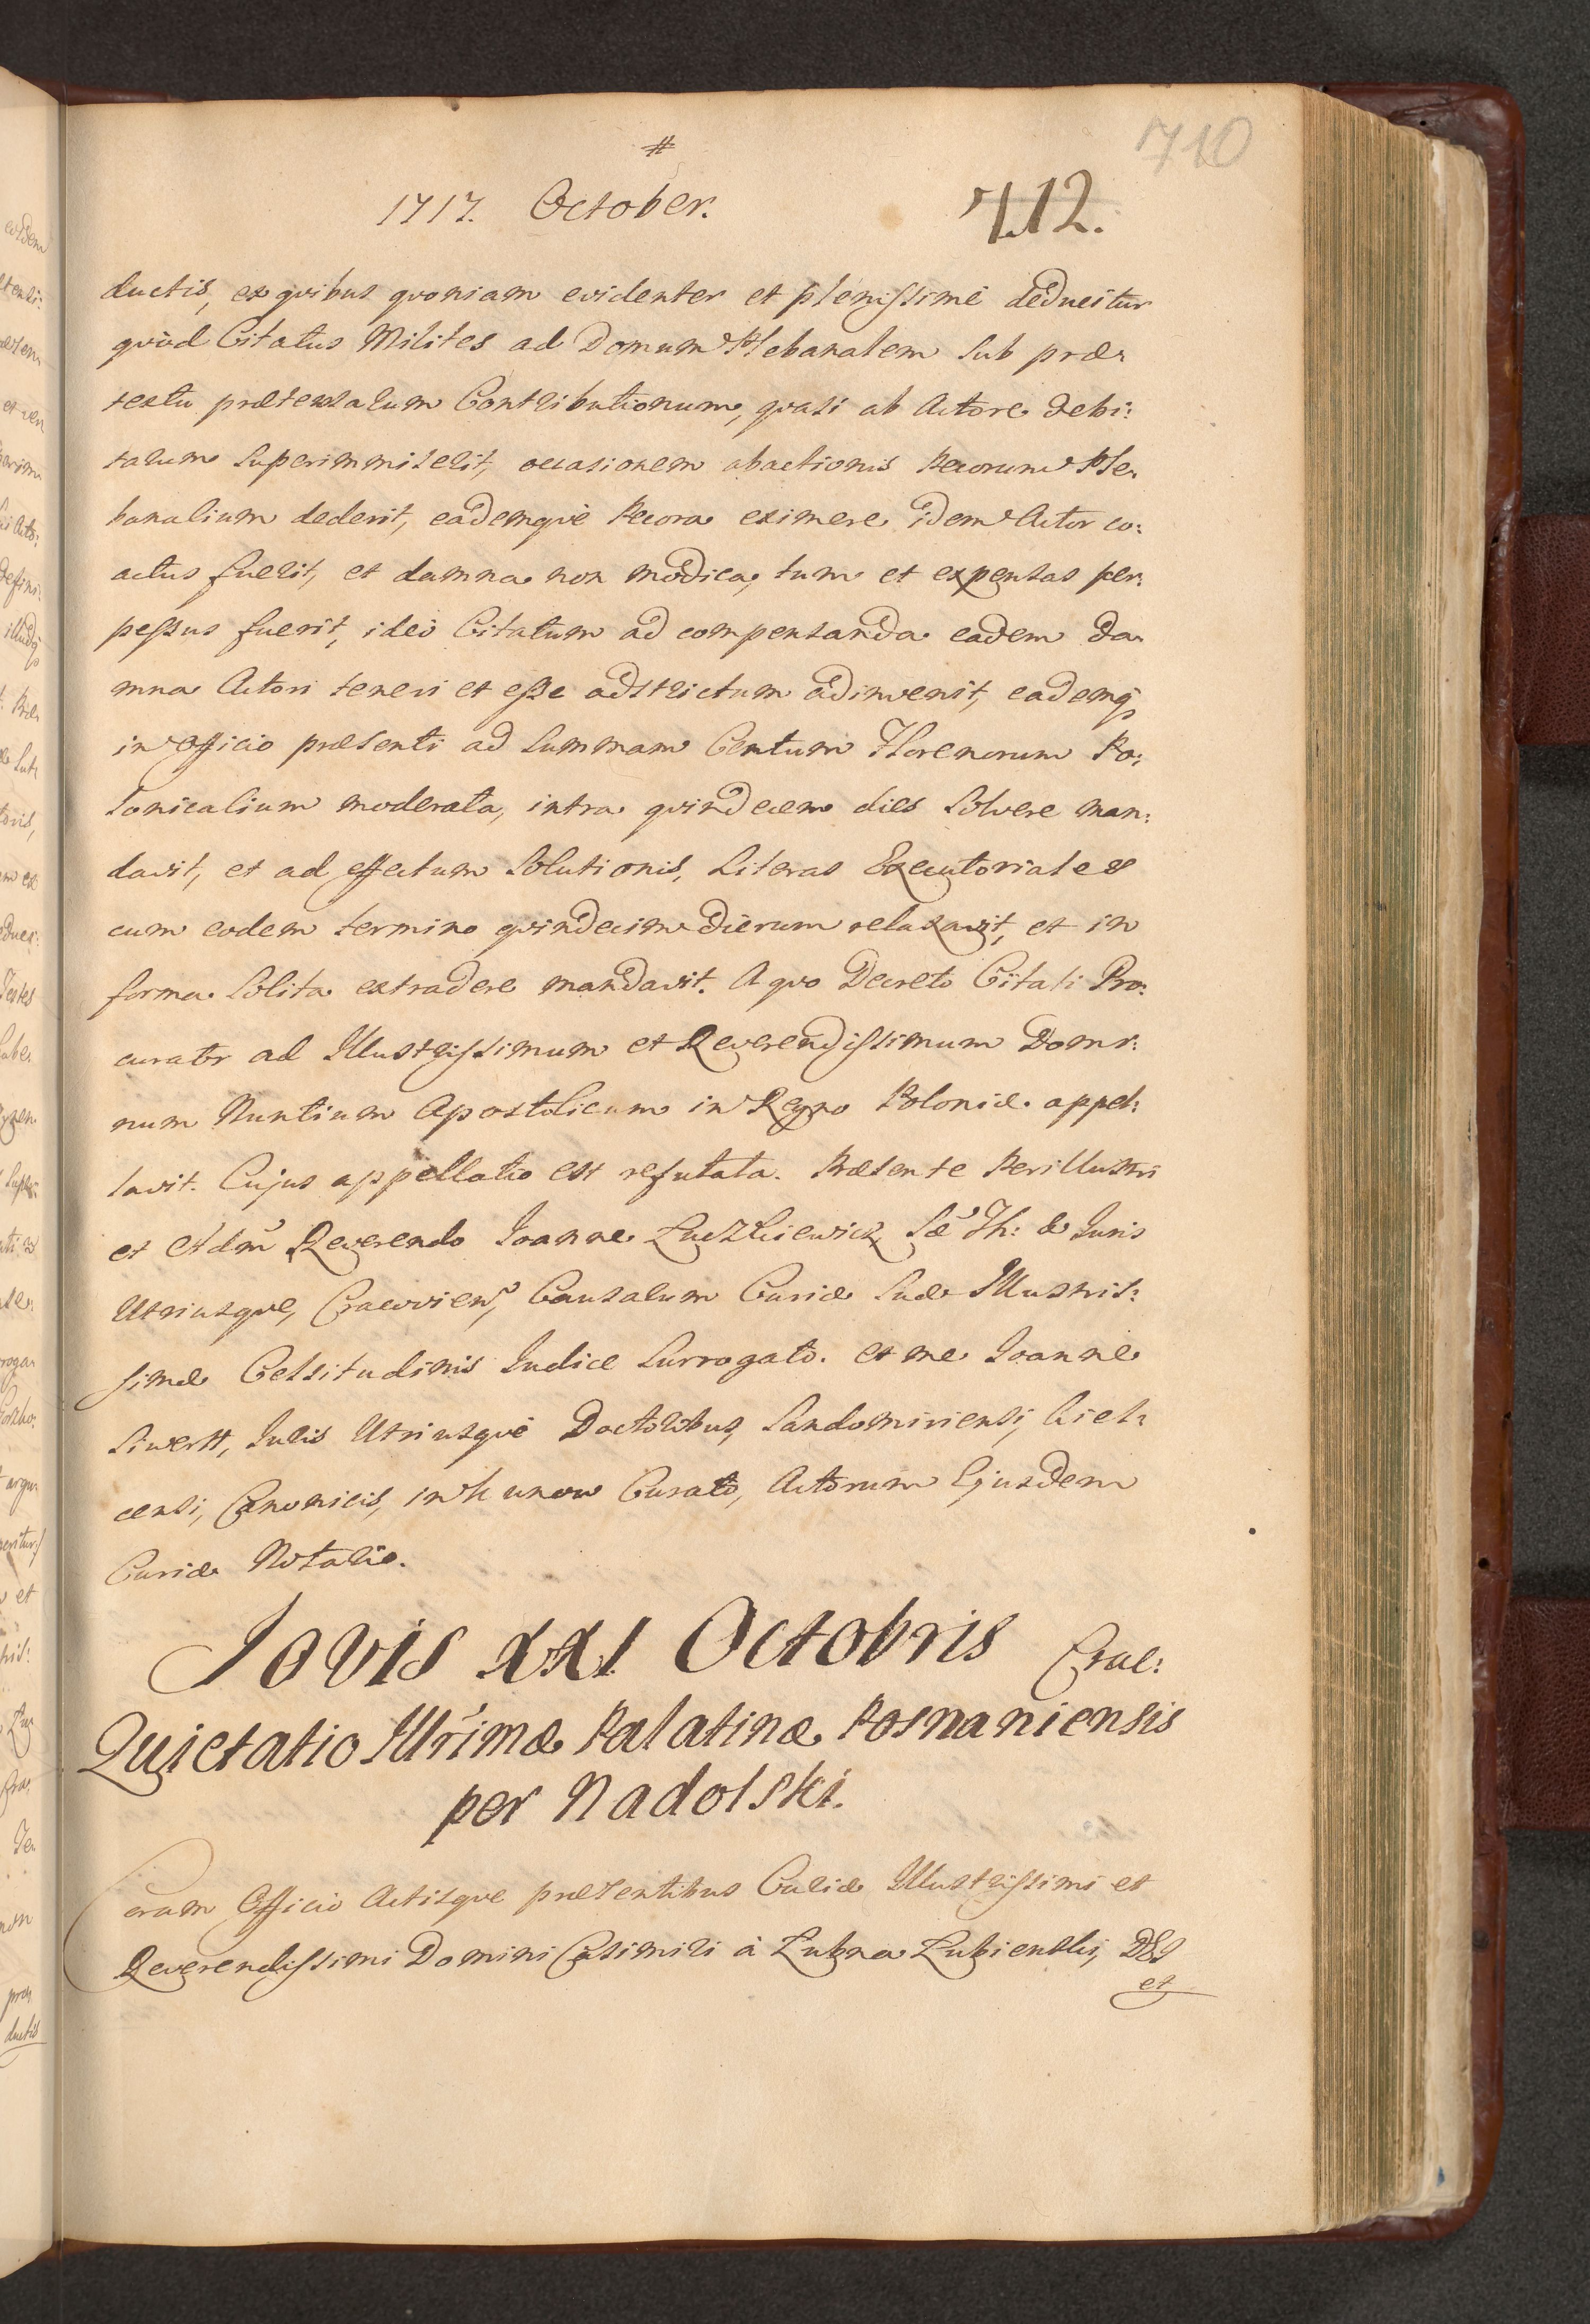 710
#
1717. October. 712.
ductis, ex quibus quoniam evidenter et plenissimè deducitur
quòd Citatus Milites ad Domum Plebanalem sub præ-
textu prætensarum Contributionum, quasi ab Actore debi:
tarum superimmiserit, occasionem abactionis Pecorum Ple-
banalium dederit, eademquè Pecora eximere idem Actor co:
actus fuerit, et damna non modica, tum et expensas per:
pessus fuerit, ideò Citatum ad compensanda eadem da-
mna Actori teneri et esse adstrictum adinvenit, eademq
in Officio præsenti ad summam Centum Florenorum Po:
lonicalium moderata, intra quindecem dies solvere man:
davit, et ad effectum solutionis, Literas Executoriales
cum eodem termino quindecim dierum relaxavit, et in
forma solita extradere mandavit. A quo Decreto Citati Pro:
curator ad Illustrissimum et Reverendissimum Domi:
num Nuntium Apostolicum in Regno Poloniæ appel:
lavit. Cujus appellatio est refutata. Præsente Perillustri
et Adm̃ Reverendo Joanne Łuczkiewicz Sæ Th: & Juris
Utriusque, Cracovien, Causarum Curiæ Suæ Illustris:
simæ Celsitudinis Judice Surrogato. et me Joanne
Siwertt, Juris Utriusquè Doctoribus, Sandomiriensi, Kiel:
censi, Canonicis, in Curato, Actorum Ejusdem
Curiæ Notario.
Jovis XXI Octobris Crac:
Quietatio Illr̃imæ Palatinæ Posnaniensis
per Nadolski.
Coram Officio Actisque præsentibus Curiæ Illustrissimi et
Reverendissimi Domini Casimiri à Łubna Łubienski, DEI
et